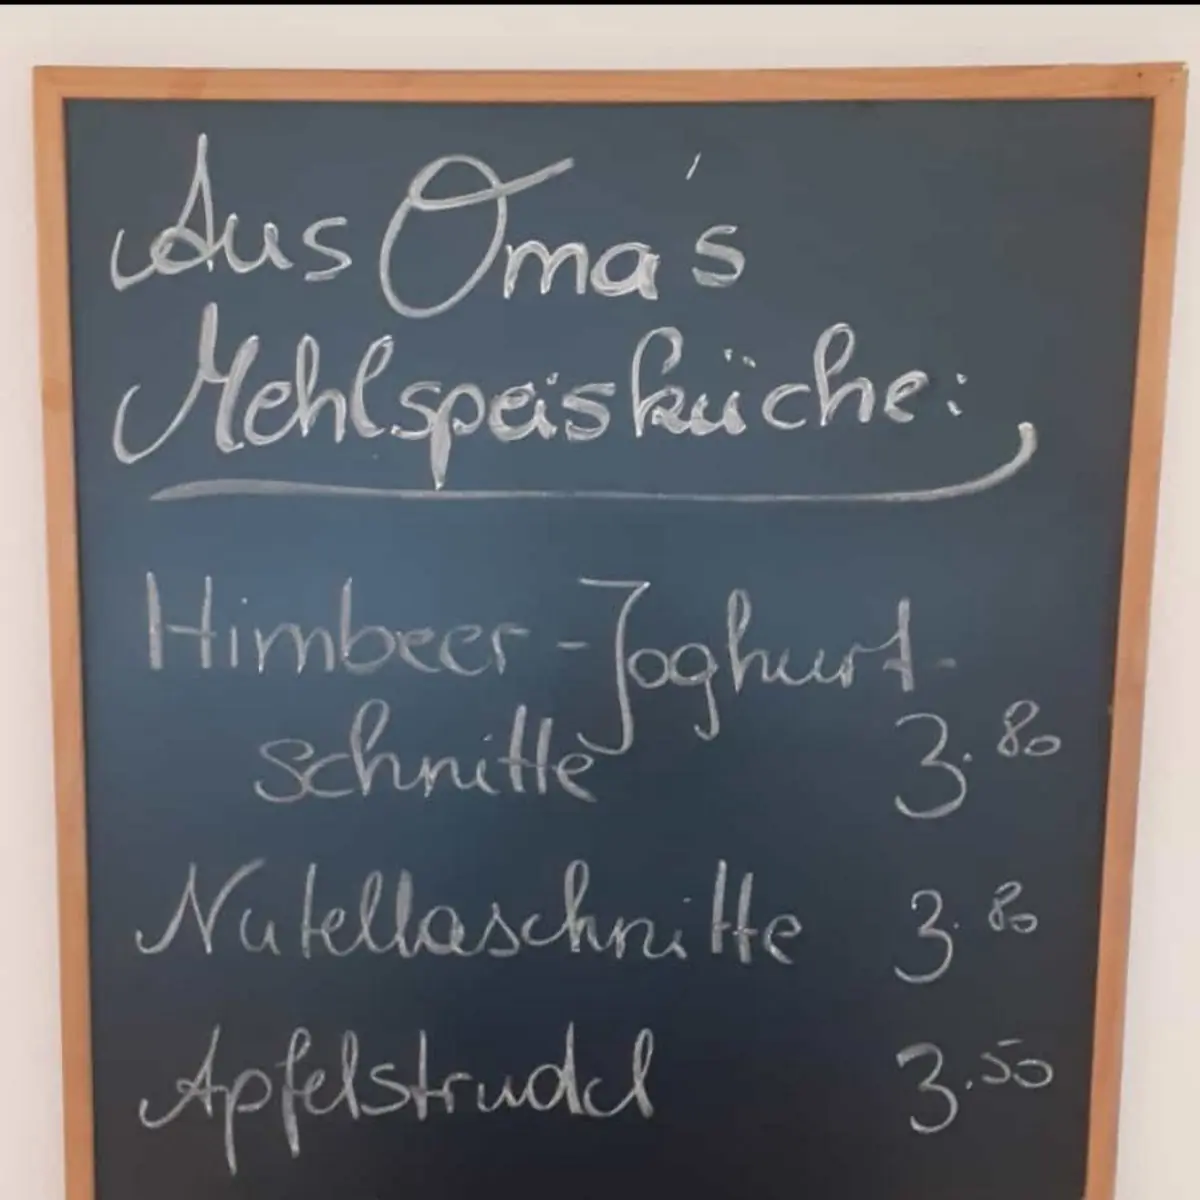 Aus Oma's
Mehlspeisküche:
Himbeer-Joghurt-
schnitte 3.80
Nutellaschnitte 3.80
Apfelstrudel 3.50